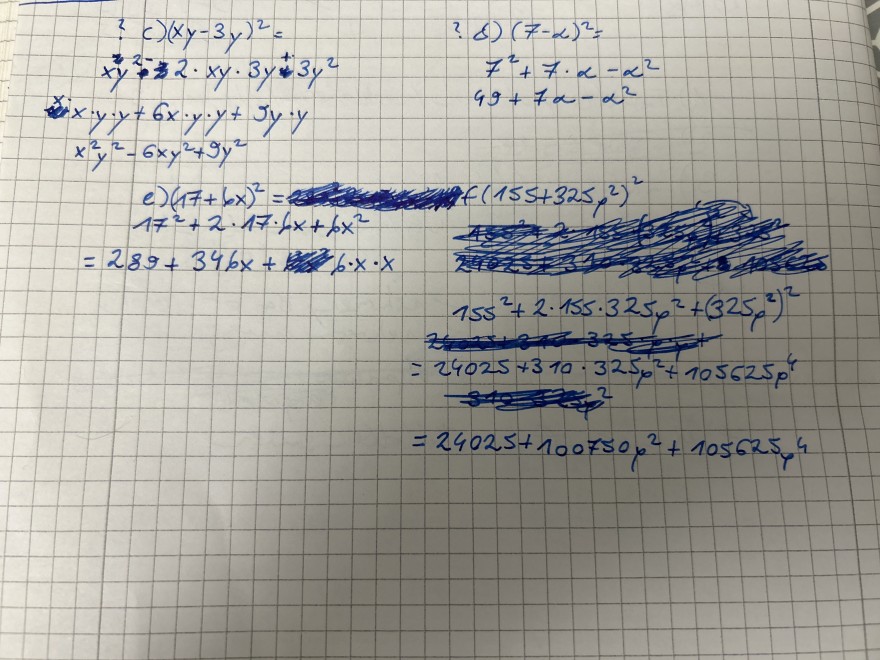 ? c) (xy-3y)² =
x²y² - 2·xy·3y + 3y²
x·x·y·y + 6x·y·y + 9y·y
x²y² - 6xy² + 9y²
? d) (7-a)² =
7² + 7·a - a²
49 + 7a - a²
e) (17+6x)² =
17² + 2·17·6x + 6x²
= 289 + 346x + 6·x·x
f (155+325p²)²
155² + 2·155·325p² + (325p²)²
= 24025 + 310·325p² + 105625p⁴
= 24025 + 100750p² + 105625p⁴